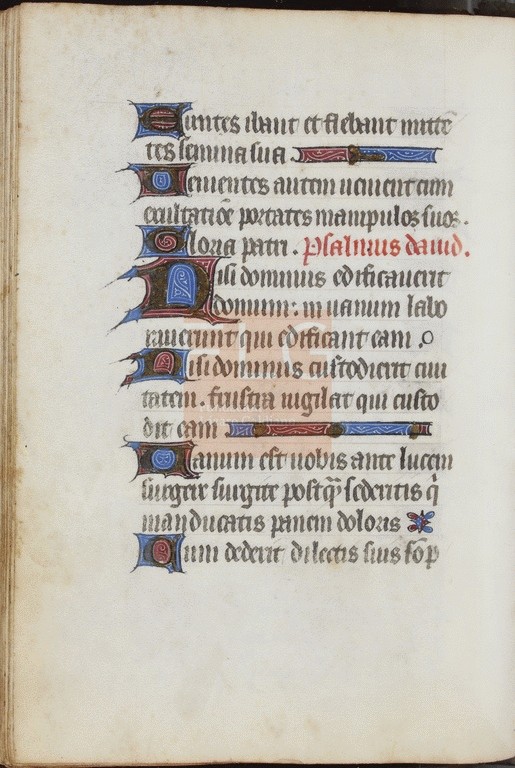 Euntes ibant et flebant mittē
tes semina sua
Uenientes autem uenient cum
exultatiōe portātes manipulos suos.
Gloria patri. Psalmus dauid.
Nisi dominus edificauerit
domum: in uanum labo
rauerunt qui edificant eam.
Nisi dominus custodierit ciui
tatem. frustra uigilat qui custo
dit eam
Uanum est uobis ante lucem
surgere surgite postq̄ sederitis q̄
manducatis panem doloris
Cum dederit dilectis suis sōp